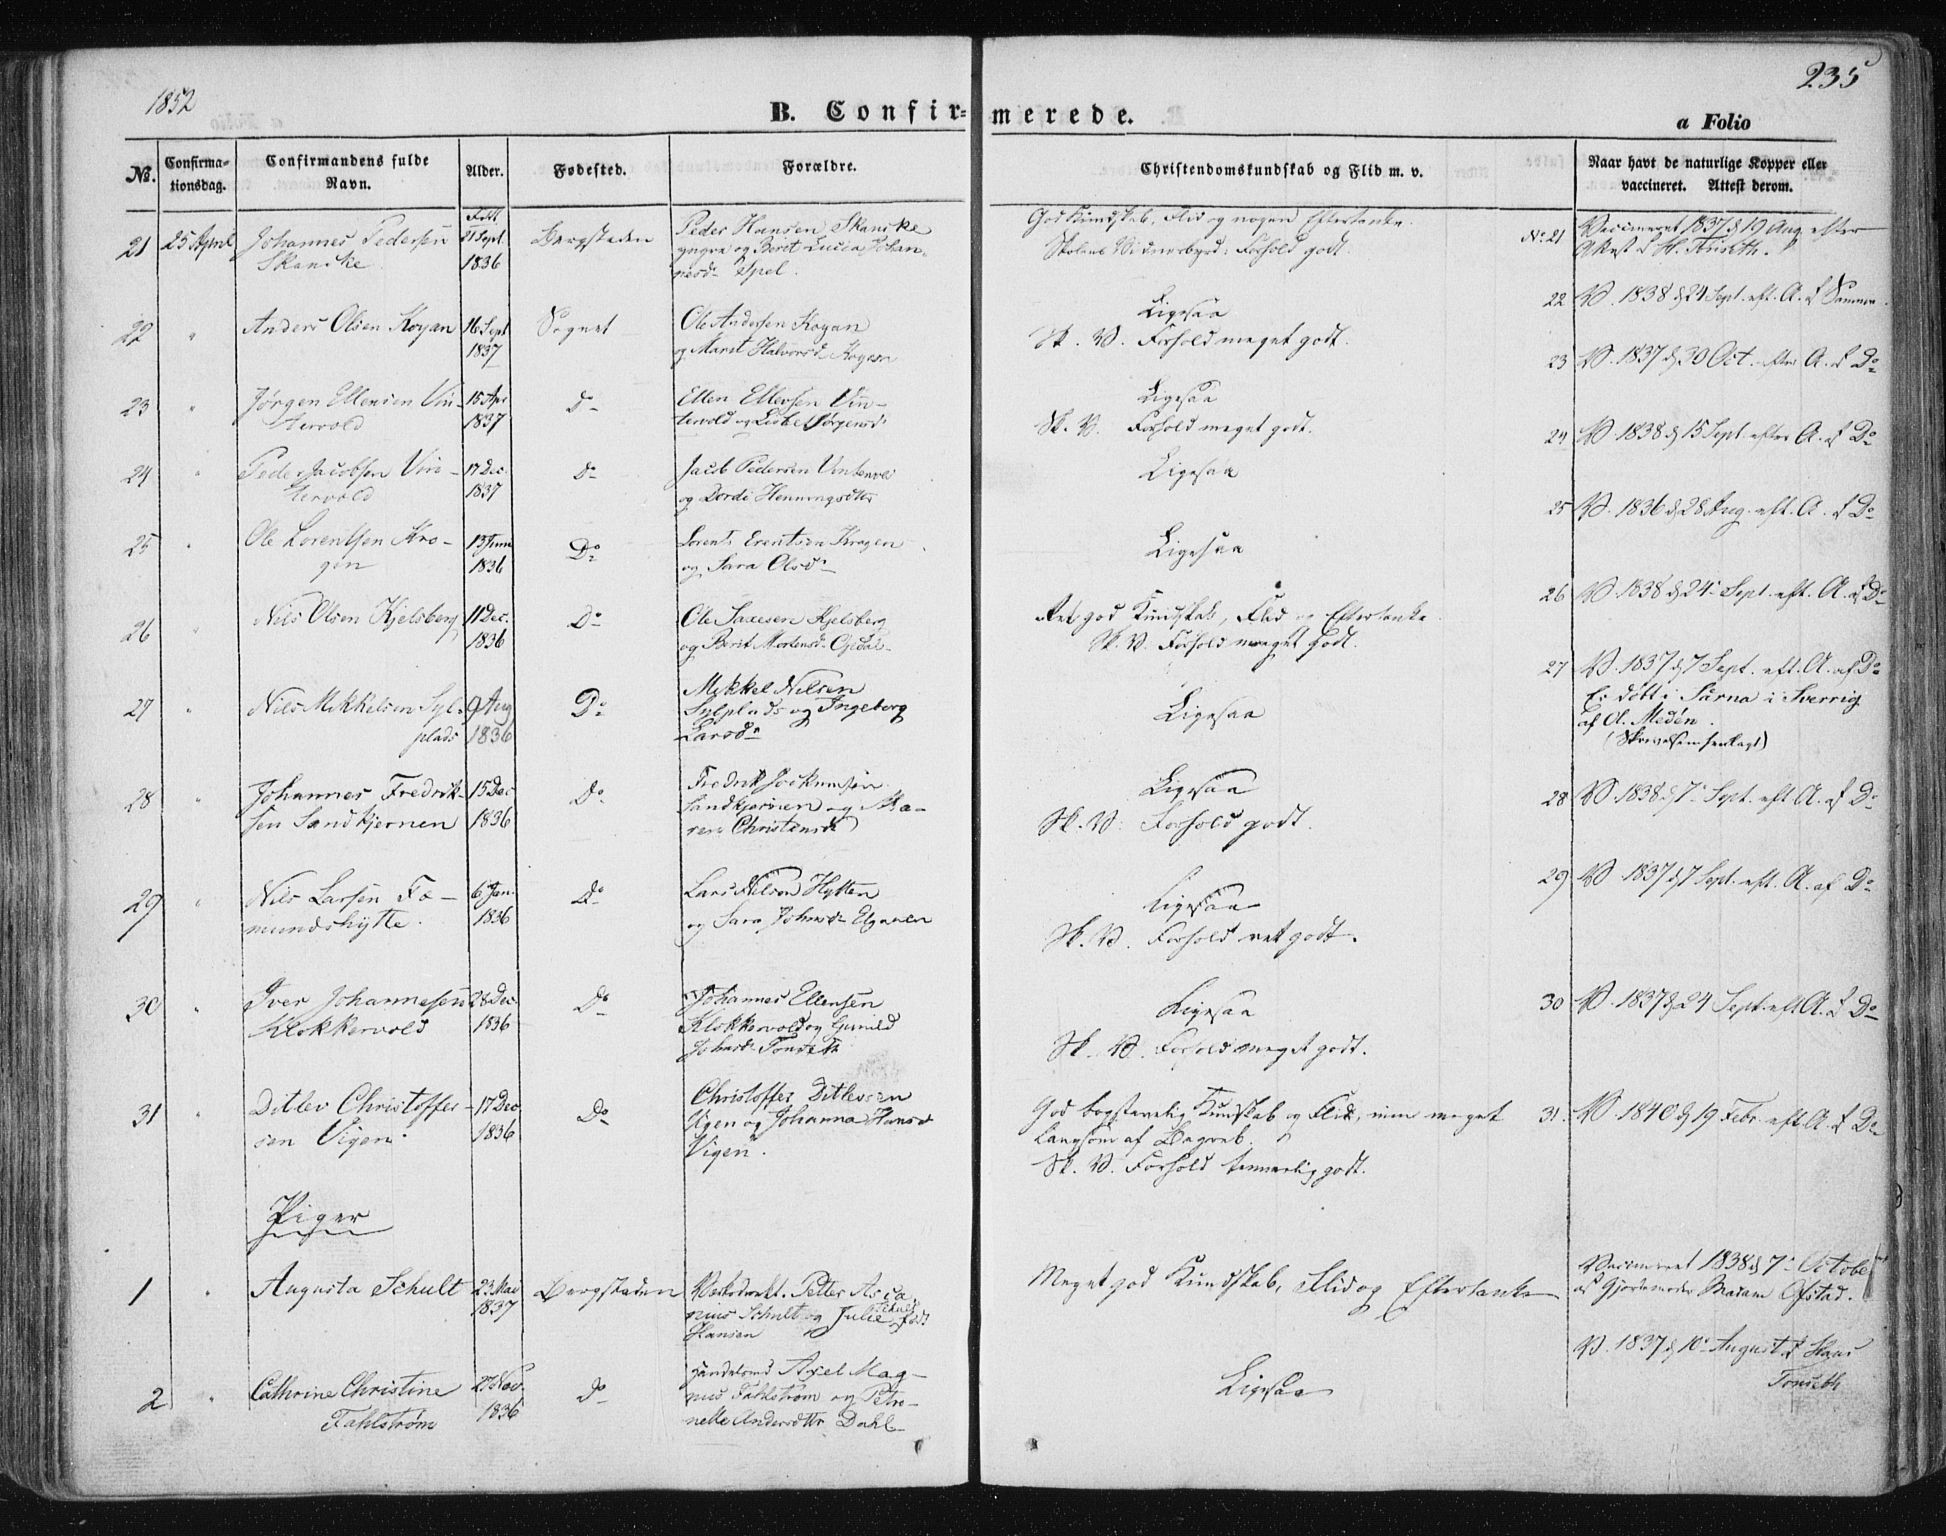 1852
235
B. Confir-
merede.
a Folio
No.
Confirma-
tionsdag.
Confirmandens fulde
Navn.
Alder.
Fødested.
Forældre.
Christendomskundskab og Flid m. v.
Naar havt de naturlige Kopper eller
vaccineret. Attest derom.
21 25 April Johannes Pedersen
Skancke
Født
21 Sept.
1836
Bergstaden
Peder Hansen Skancke
yngre og Berit Lucia Johan-
nesd. Spel.
God Kundskab, Flid og nogen Eftertanke.
Skolens Vidnesbyrd: Forhold godt.
No 21 Vaccineret 1837 d 19 Aug. efter
Akest
22 " Anders Olsen Kojan
16 Sept
1837
Sognet
Ole Andersen Kojan
og Marit Halvorsd. Kojan
Ligesaa
Sk. V. Forhold meget godt.
22 V. 1838 d 24 Sept. eft. A. af Samme.
23 " Jørgen Ellensen Vin-
tervold
15 Apr
1837
do
Ellen Ellevsen Vin-
tervold og Lisbet Jørgensd.
Ligesaa
Sk. V. Forhold meget godt.
23 V. 1837 d 30 Oct. efter A. af Do
24 " Peder Jacobsen Vin-
tervold
17 Dec.
1837
do
Jacob Pedersen Vintervold
og Dordi Henningsdtter
Ligesaa
24 V. 1838 d 15 Sept. efter A. af Do
25 " Ole Lorentsen Kro-
gen
13 Juni
1836
Do
Lorents Erentsen Krogen
og Sara Olsd.
Ligesaa
25 V. 1836 d 28 Aug. eft. A. af Do
26 " Nils Olsen Kjelsberg
11 Dec.
1836
Do
Ole Saxesen Kjelsberg
og Berit Mortensd.
Ret god Kundskab, Flid og Eftertanke.
Sk. V. Forhold meget godt.
26 V. 1838 d 24 Sept. eft. A. af Do
27 " Nils Mikkelsen Syl-
plads
9 Aug
1836
Do
Mikkel Nilsen
Sylplads og Ingeborg
Larsd.
Ligesaa
27 V. 1837 d 7 Sept. eft. A. af Do
Er døbt i Särna i Sverrig
af A. Medén.
28 " Johannes Fredrik-
sen Sandtjernen
15 Dec
1836
Do
Fredrik Jockumsen
Sandtjernen og Ma-
ren Christensd.
Ligesaa
Sk. V. Forhold godt.
28 V. 1838 d 7 Sept. eft. A. af Do
29 " Nils Larsen Fæ-
mundshytte.
6 Jan.
1836
Do
Lars Nilsen Hytten
og Sara Johnsd. Elgaaen
Ligesaa
Sk. V. Forhold ret godt.
29 V. 1837 d 7 Sept. eft. A. af Do
30 " Iver Johannesen
Klokkervold
28 Dec.
1836
Do
Johannes Ellensen
Klokkervold og Gunild
Johnsd. Tonseth
Ligesaa
Sk. V. Forhold meget godt.
30 V. 1837 d 24 Sept. eft. A. af Do
31 " Ditlev Christoffer-
sen Vigen.
17 Dec
1836
Do
Christoffer Ditlevsen
Vigen og Johanna Hansd
Vigen.
God bogstavelig Kundskab og Flid, men meget
langsom af Begreb.
Sk. V. Forhold temmelig godt.
31. V. 1840 d 19 Febr. eft. A. af Do
Piger
1 " Augusta Schult
23 Mai
1837
Bergstaden
Petter Asca-
nius Schult og Julie født
Hansen
Meget god Kundskab, Flid og Eftertanke
Vaccineret 1838 d 7 October
af Gjordemoder Madam Ofstad.
2 " Cathrine Christine
Fahlstrøm
27 Nov.
1836
Do
Handelsmd Axel Mag-
nus Fahlstrøm og Petro-
nelle Andersdttr. Dahl
Ligesaa
V. 1837 d 10 August af Hans
Tonseth